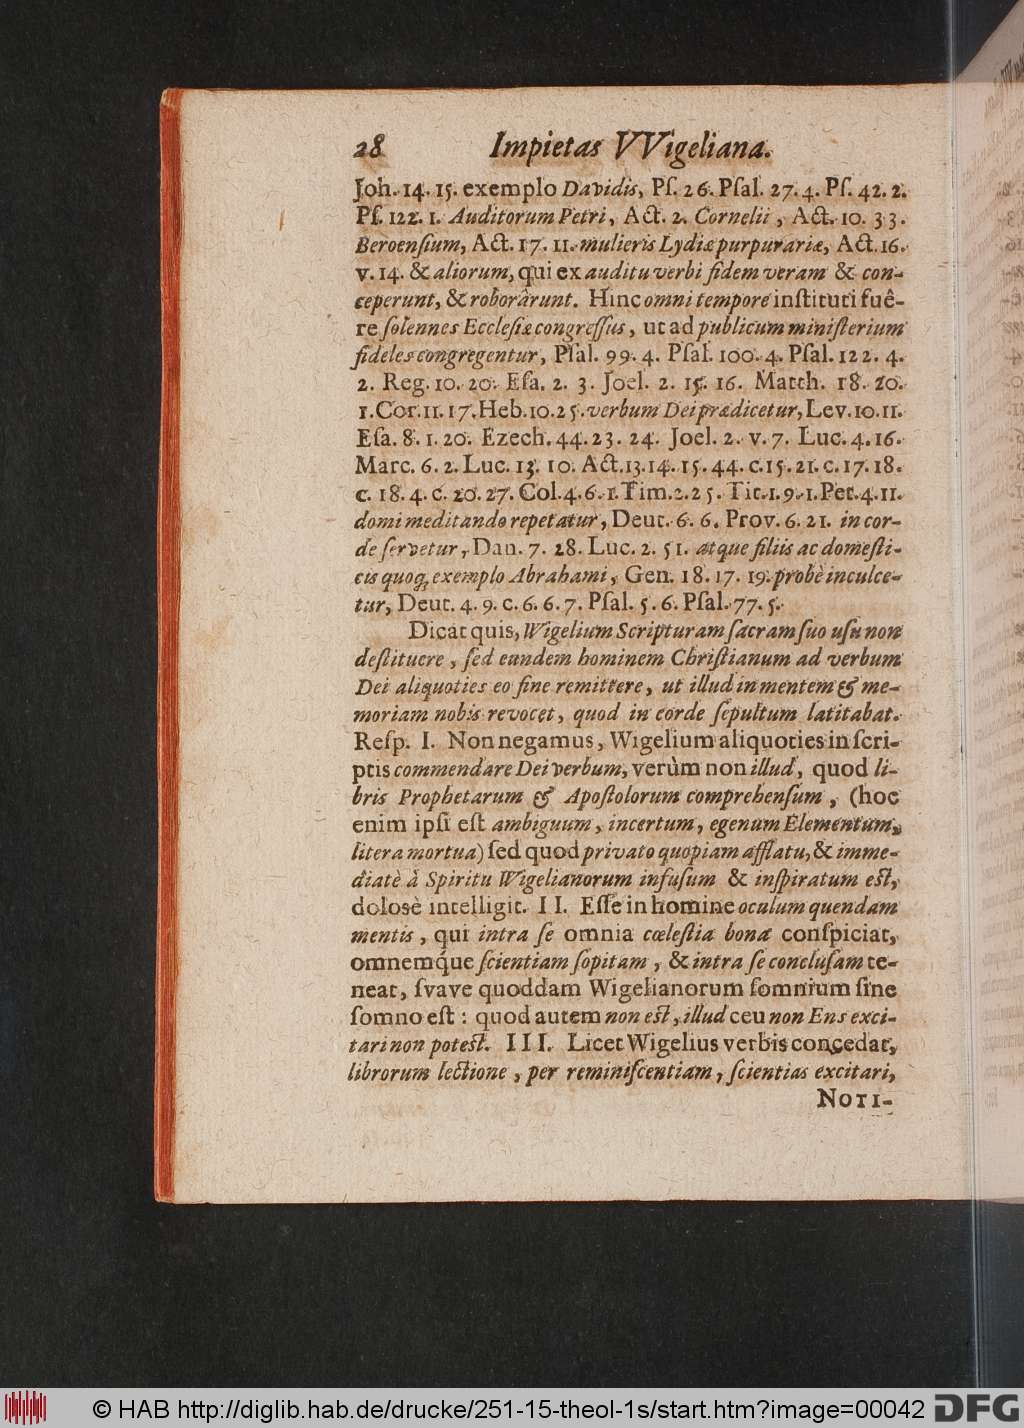 28 Impietas VVigeliana.
Joh. 14. 15. exemplo Davidis, Pſ. 26. Pſal. 27. 4. Pſ. 42. 2.
Pſ. 122. 1. Auditorum Petri, Act. 2. Cornelii, Act. 10. 33.
Beroenſium, Act. 17. 11. mulieris Lydiæ purpurariæ, Act. 16.
v. 14. & aliorum, qui ex auditu verbi fidem veram & con-
ceperunt, & roborârunt. Hinc omni tempore inſtituti fuê-
re ſolennes Eccleſiæ congreſſus, ut ad publicum miniſterium
fideles congregentur, Pſal. 99. 4. Pſal. 100. 4. Pſal. 122. 4.
2. Reg. 10. 20. Eſa. 2. 3. Joel. 2. 15. 16. Matth. 18. 20.
1. Cor. 11. 17. Heb. 10. 25. verbum Dei prædicetur, Lev. 10. 11.
Eſa. 8. 1. 20. Ezech. 44. 23. 24. Joel. 2. v. 7. Luc. 4. 16.
Marc. 6. 2. Luc. 13. 10. Act. 13. 14. 15. 44. c. 15. 21. c. 17. 18.
c. 18. 4. c. 20. 27. Col. 4. 6. 1. Tim. 2. 25. Tit. 1. 9. 1. Pet. 4. 11.
domi meditando repetatur, Deut. 6. 6. Prov. 6. 21. in cor-
de ſervetur, Dan. 7. 28. Luc. 2. 51. atque filiis ac domeſti-
cis quoq; exemplo Abrahami, Gen. 18. 17. 19. probè inculce-
tur, Deut. 4. 9. c. 6. 6. 7. Pſal. 5. 6. Pſal. 77. 5.
Dicat quis, Wigelium Scripturam ſacram ſuo uſu non
deſtituere, ſed eundem hominem Chriſtianum ad verbum
Dei aliquoties eo fine remittere, ut illud in mentem & me-
moriam nobis revocet, quod in corde ſepultum latitabat.
Reſp. I. Non negamus, Wigelium aliquoties in ſcri-
ptis commendare Dei verbum, verùm non illud, quod li-
bris Prophetarum & Apoſtolorum comprehenſum, (hoc
enim ipſi eſt ambiguum, incertum, egenum Elementum,
litera mortua) ſed quod privato quopiam afflatu, & imme-
diatè à Spiritu Wigelianorum infuſum & inſpiratum eſt,
dolosè intelligit. II. Eſſe in homine oculum quendam
mentis, qui intra ſe omnia cœleſtia bona conſpiciat,
omnemque ſcientiam ſopitam, & intra ſe concluſam te-
neat, ſvave quoddam Wigelianorum ſomnium ſine
ſomno eſt: quod autem non eſt, illud ceu non Ens exci-
tari non poteſt. III. Licet Wigelius verbis concedat,
librorum lectione, per reminiſcentiam, ſcientias excitari,
NOTI-
© HAB http://diglib.hab.de/drucke/251-15-theol-1s/start.htm?image=00042
DFG